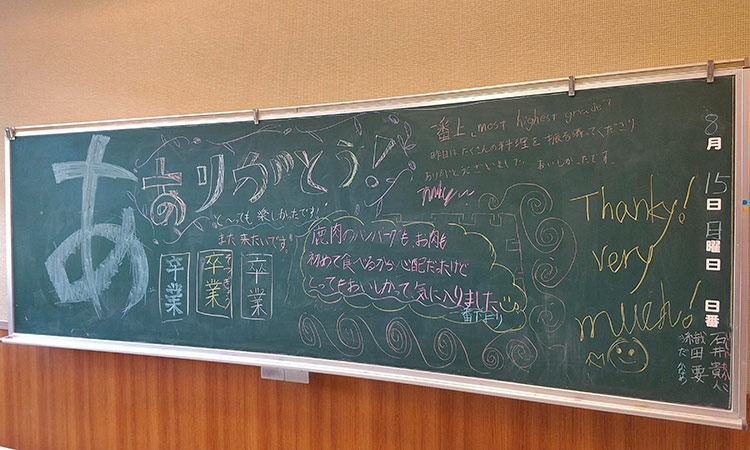 あ
ありがとう!
とっても楽しかったです!
また来たいです!
卒業
そつぎょう
卒業
卒業
一番上、most highest grade?
昨日はたくさんの料理を振る舞ってくださり
ありがとうございました。おいしかったです。
鹿肉のハンバーグも お肉も
初めて食べるから心配だったけど
とってもおいしかって気に入りました
一番上より
Thanky!
very
much!
8月15日月曜日 日番
石井
織田 要
おだ かなめ